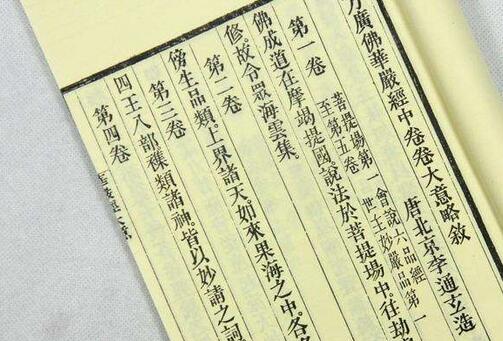 方廣佛華嚴經中卷卷大意略敘
唐北京李通玄造
第一卷
菩提場第一會說六品經
至第五卷
世主妙嚴品第一
佛成道在摩竭提國說法於菩提場中往劫
修故令眾海雲集
第二卷
傍生品類上界諸天如來果海之中各
第三卷
四王八部雜類諸神皆以妙請之詞
第四卷